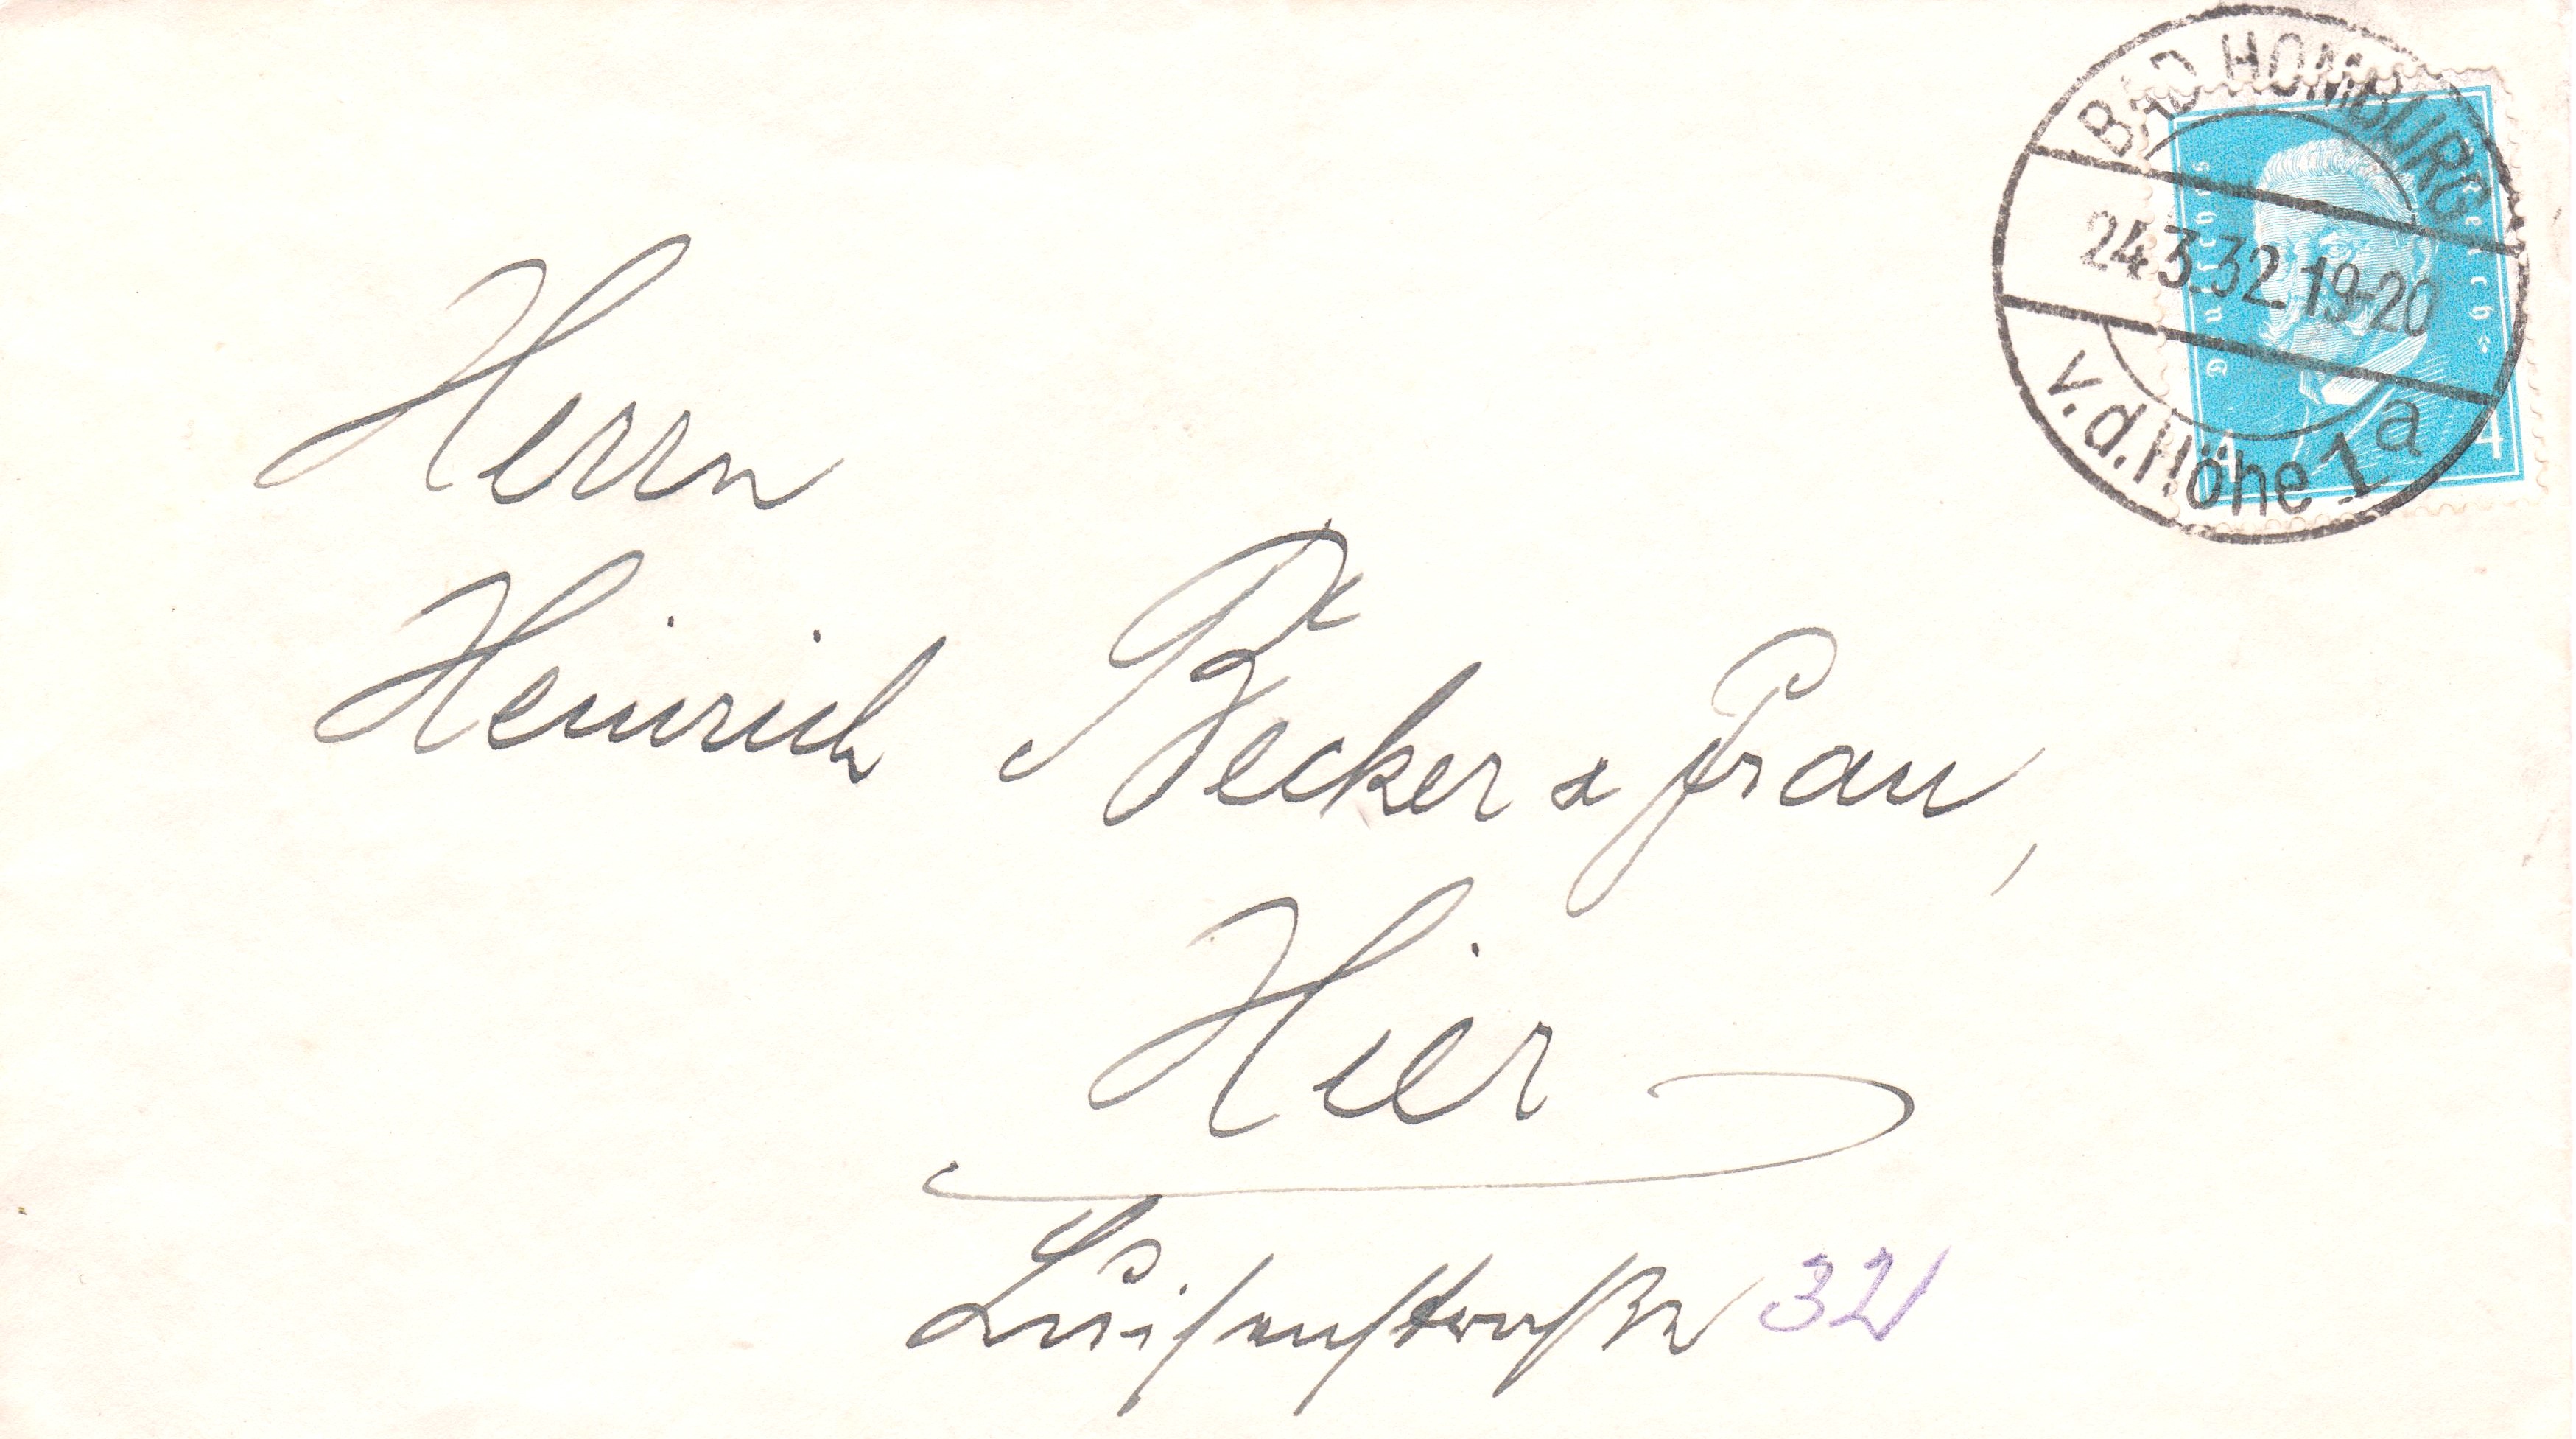 BAD HOMBURG
24.3.32.19-20
v.d.Höhe 1 a
Deutsches Reich
4
Herrn
Heinrich Becker & Frau,
Hier
Luisenstraße 32